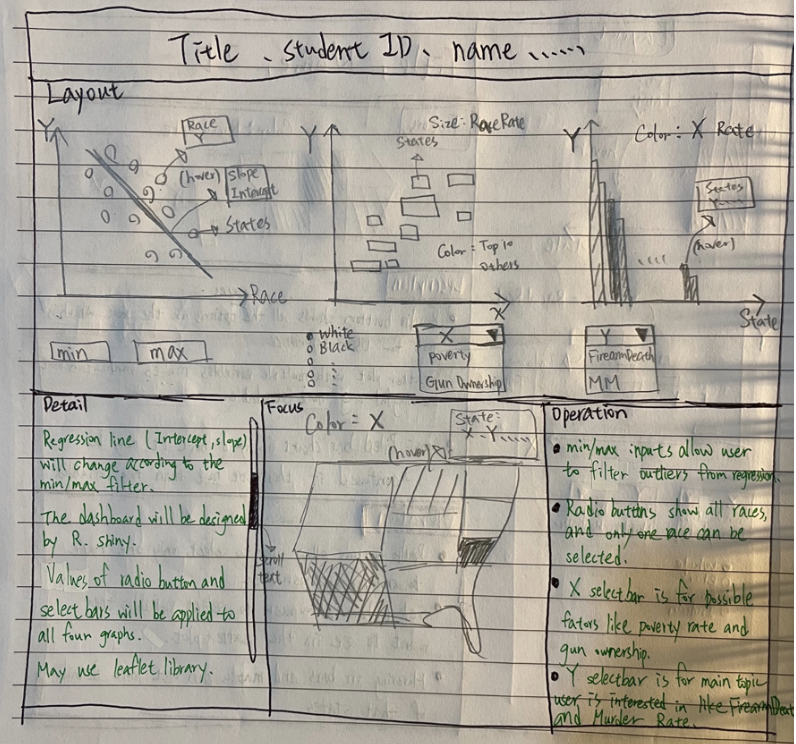 Title、student ID、name ......
Layout
Y
Race
Y
(hover)
Slope
Intercept
States
Race
min
max
Y
Size: RaceRate
States
Color: Top 10
Others
X
White
Black
X
poverty
Gun Ownership
Y
Color: X Rate
States
Y.....
(hover)
....
State
Y
FirearmDeath
MM
Detail
Regression line (Intercept, slope)
will change according to the
min/max filter.
The dashboard will be designed
by R. shiny.
Values of radio button and
select bars will be applied to
all four graphs.
May use leaflet library.
Scroll
text
Focus
Color = X
State:
X..Y.....
(hover)
Operation
min/max inputs allow user
to filter outliers from regression.
Radio buttons show all races,
and only one race can be
selected.
X selectbar is for possible
fators like poverty rate and
gun ownership.
Y selectbar is for main topic
user is interested in like FirearmDeat
and Murder Rate.